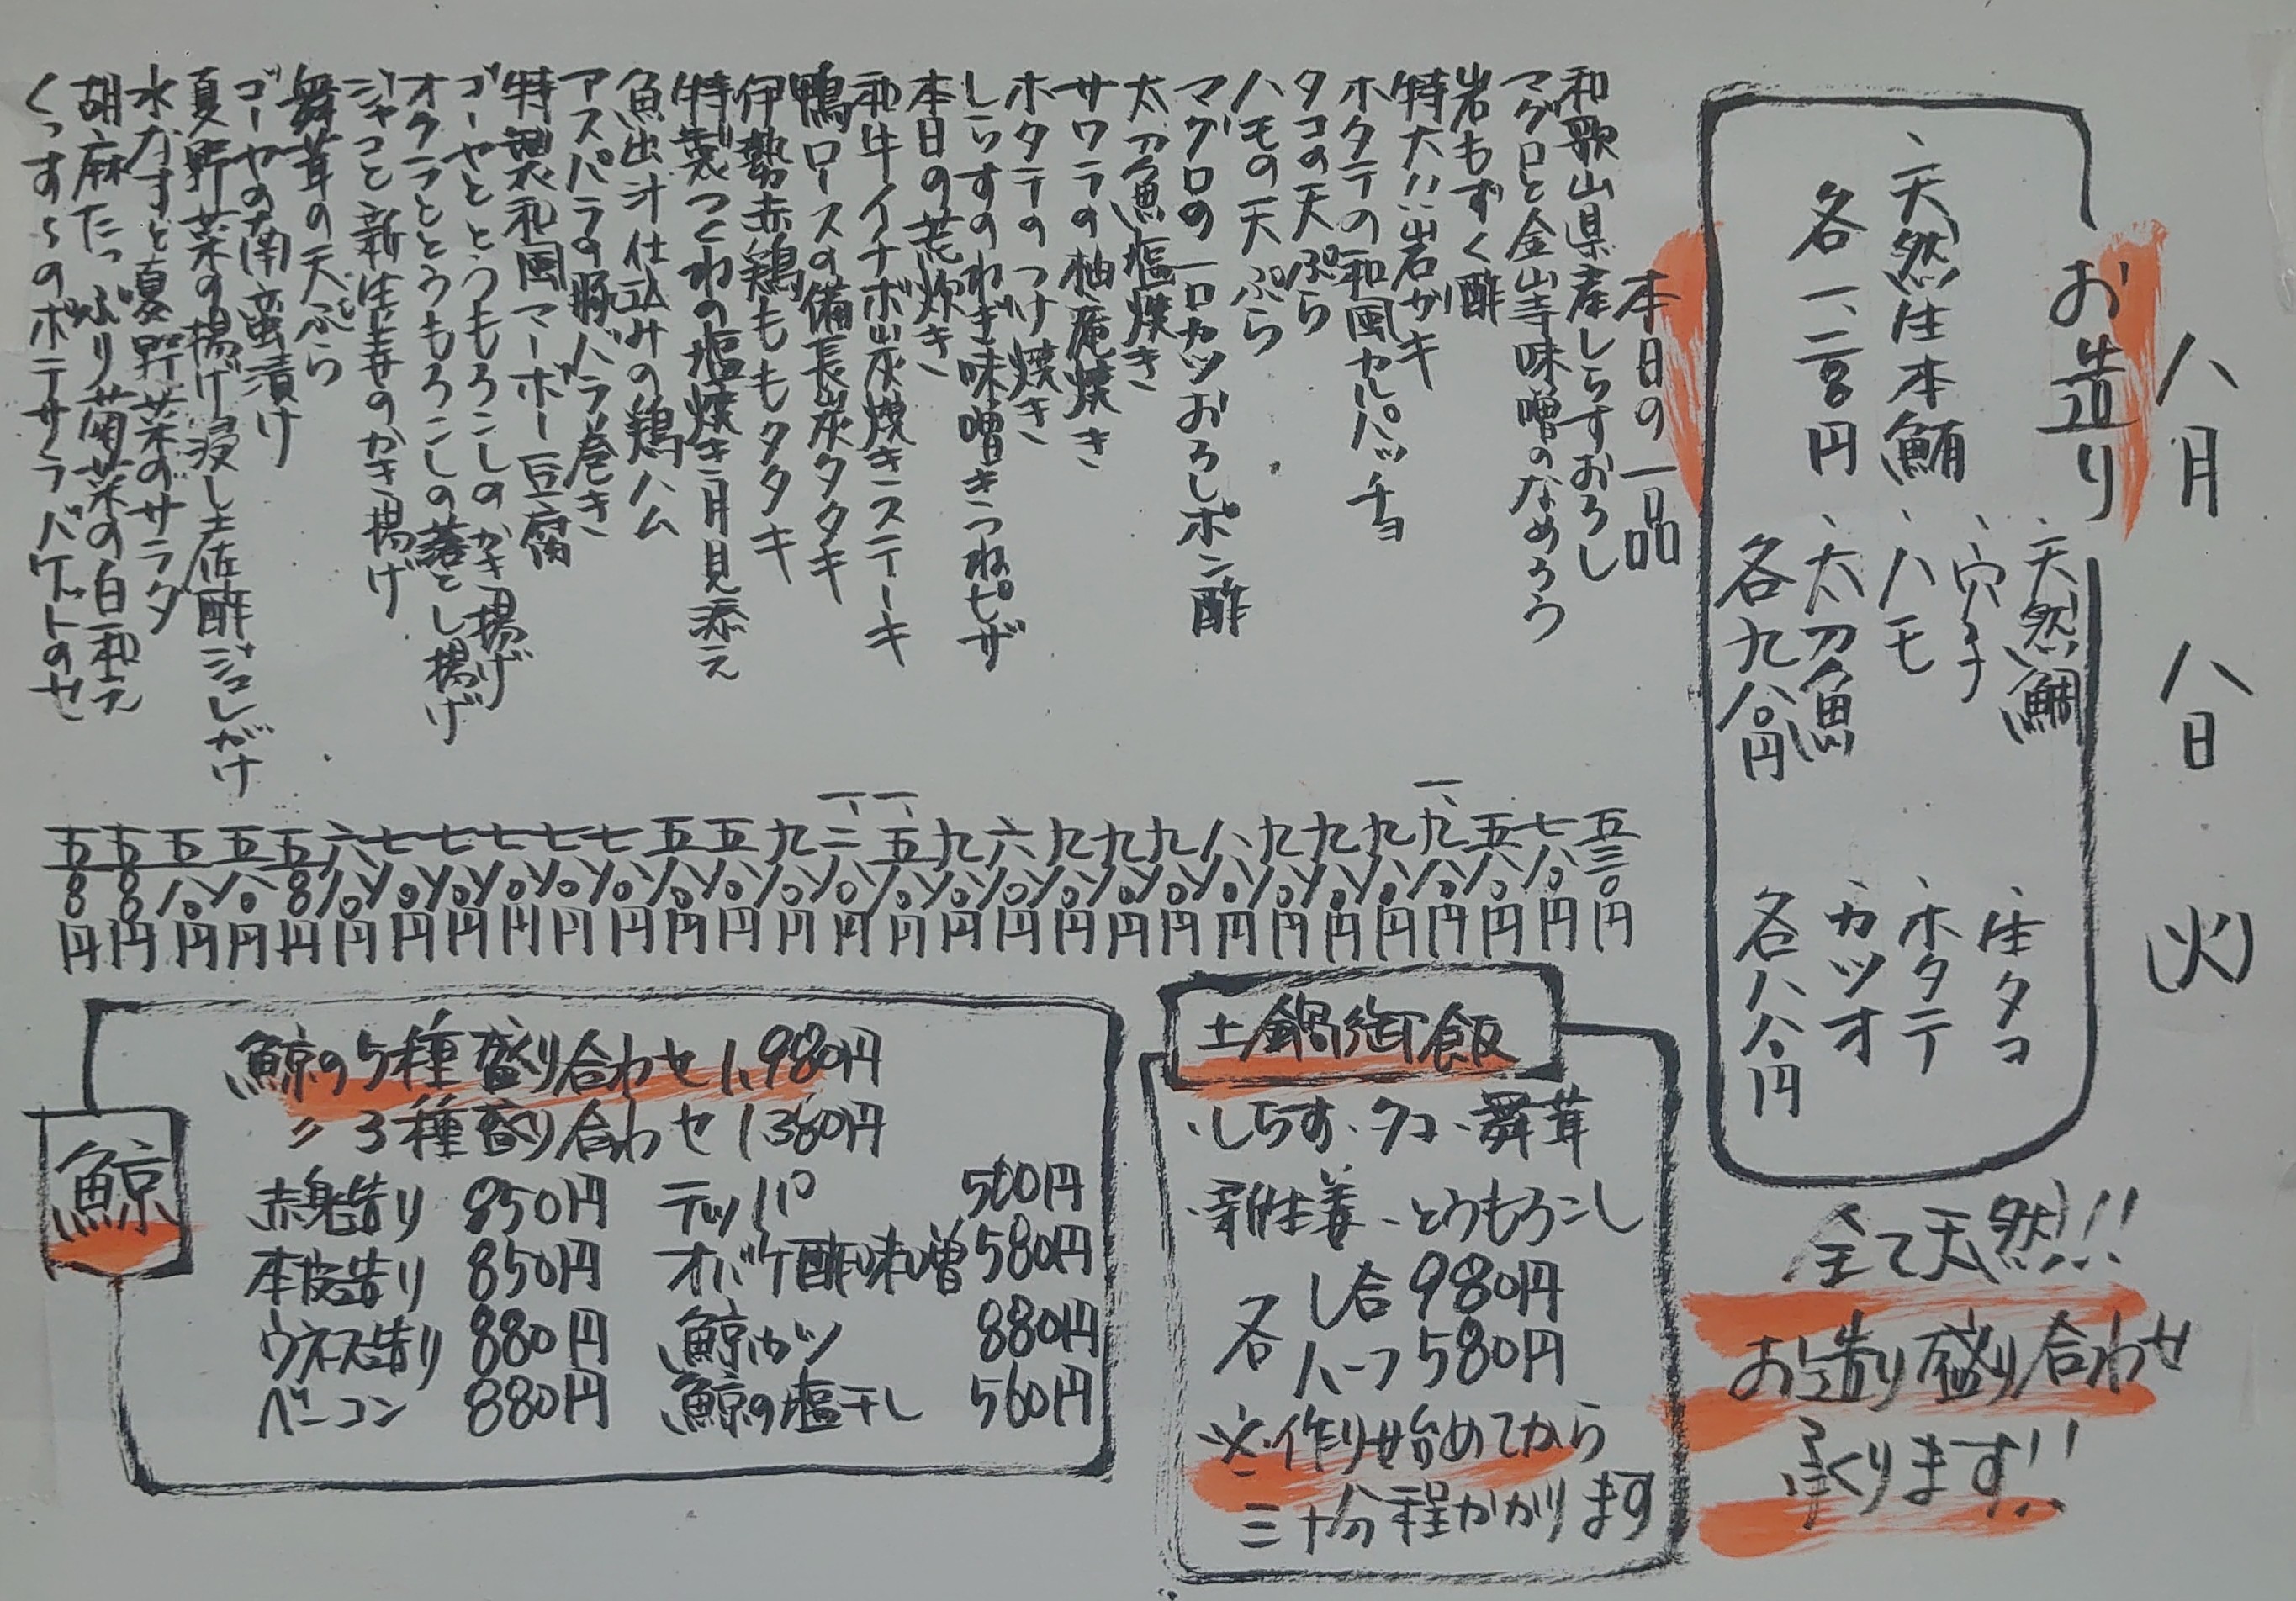 八月 八日 (火)
お造り
、天然生本鮪
各一、二〇〇円
、天然鯛
、穴子
、ハモ
、太刀魚
各九八〇円
、生タコ
、ホタテ
、カツオ
各八八〇円
全て天然!!
お造り盛り合わせ
承ります!!
本日の一品
和歌山県産しらすおろし 五三〇円
マグロと金山寺味噌のなめろう 七八〇円
岩もずく酢 五八〇円
特大!!岩ガキ 一、九八〇円
ホタテの和風カルパッチョ 九八〇円
タコの天ぷら 九八〇円
ハモの天ぷら 九八〇円
マグロの一口カツおろしポン酢 八八〇円
太刀魚塩焼き 九八〇円
サワラの柚庵焼き 九八〇円
ホタテのつけ焼き 九八〇円
しらすのねぎ味噌きつねピザ 六八〇円
本日の荒炊き 九八〇円
和牛イチボ炭焼きステーキ 一、五八〇円
鴨ロースの備長炭タタキ 一、二八〇円
伊勢赤鶏ももタタキ 九八〇円
特製つくねの塩焼き月見添え 五八〇円
魚出汁仕込みの鶏ハム 五八〇円
アスパラの豚バラ巻き 七八〇円
特製和風マーボー豆腐 七八〇円
ゴーヤととうもろこしのかき揚げ 七八〇円
オクラととうもろこしの落とし揚げ 七八〇円
ジャコと新生姜のかき揚げ 七八〇円
舞茸の天ぷら 六八〇円
ゴーヤの南蛮漬け 五〇〇円
夏野菜の揚げ浸し土佐酢ジュレがけ 五八〇円
水なすと夏野菜のサラダ 五八〇円
胡麻たっぷり菊菜の白和え 五〇〇円
くっす〜のポテサラバケットのせ 五〇〇円
土鍋御飯
、しらす、タコ、舞茸
、新生姜、とうもろこし
各 1合 980円
ハーフ 580円
※作り始めてから
三十分程かかります
鯨
鯨の5種盛り合わせ 1,980円
〃3種盛り合わせ 1,380円
赤身造り 850円 テッパ 500円
本皮造り 850円 オバケ酢味噌 580円
ウネス造り 880円 鯨カツ 880円
ベーコン 880円 鯨の塩干し 560円